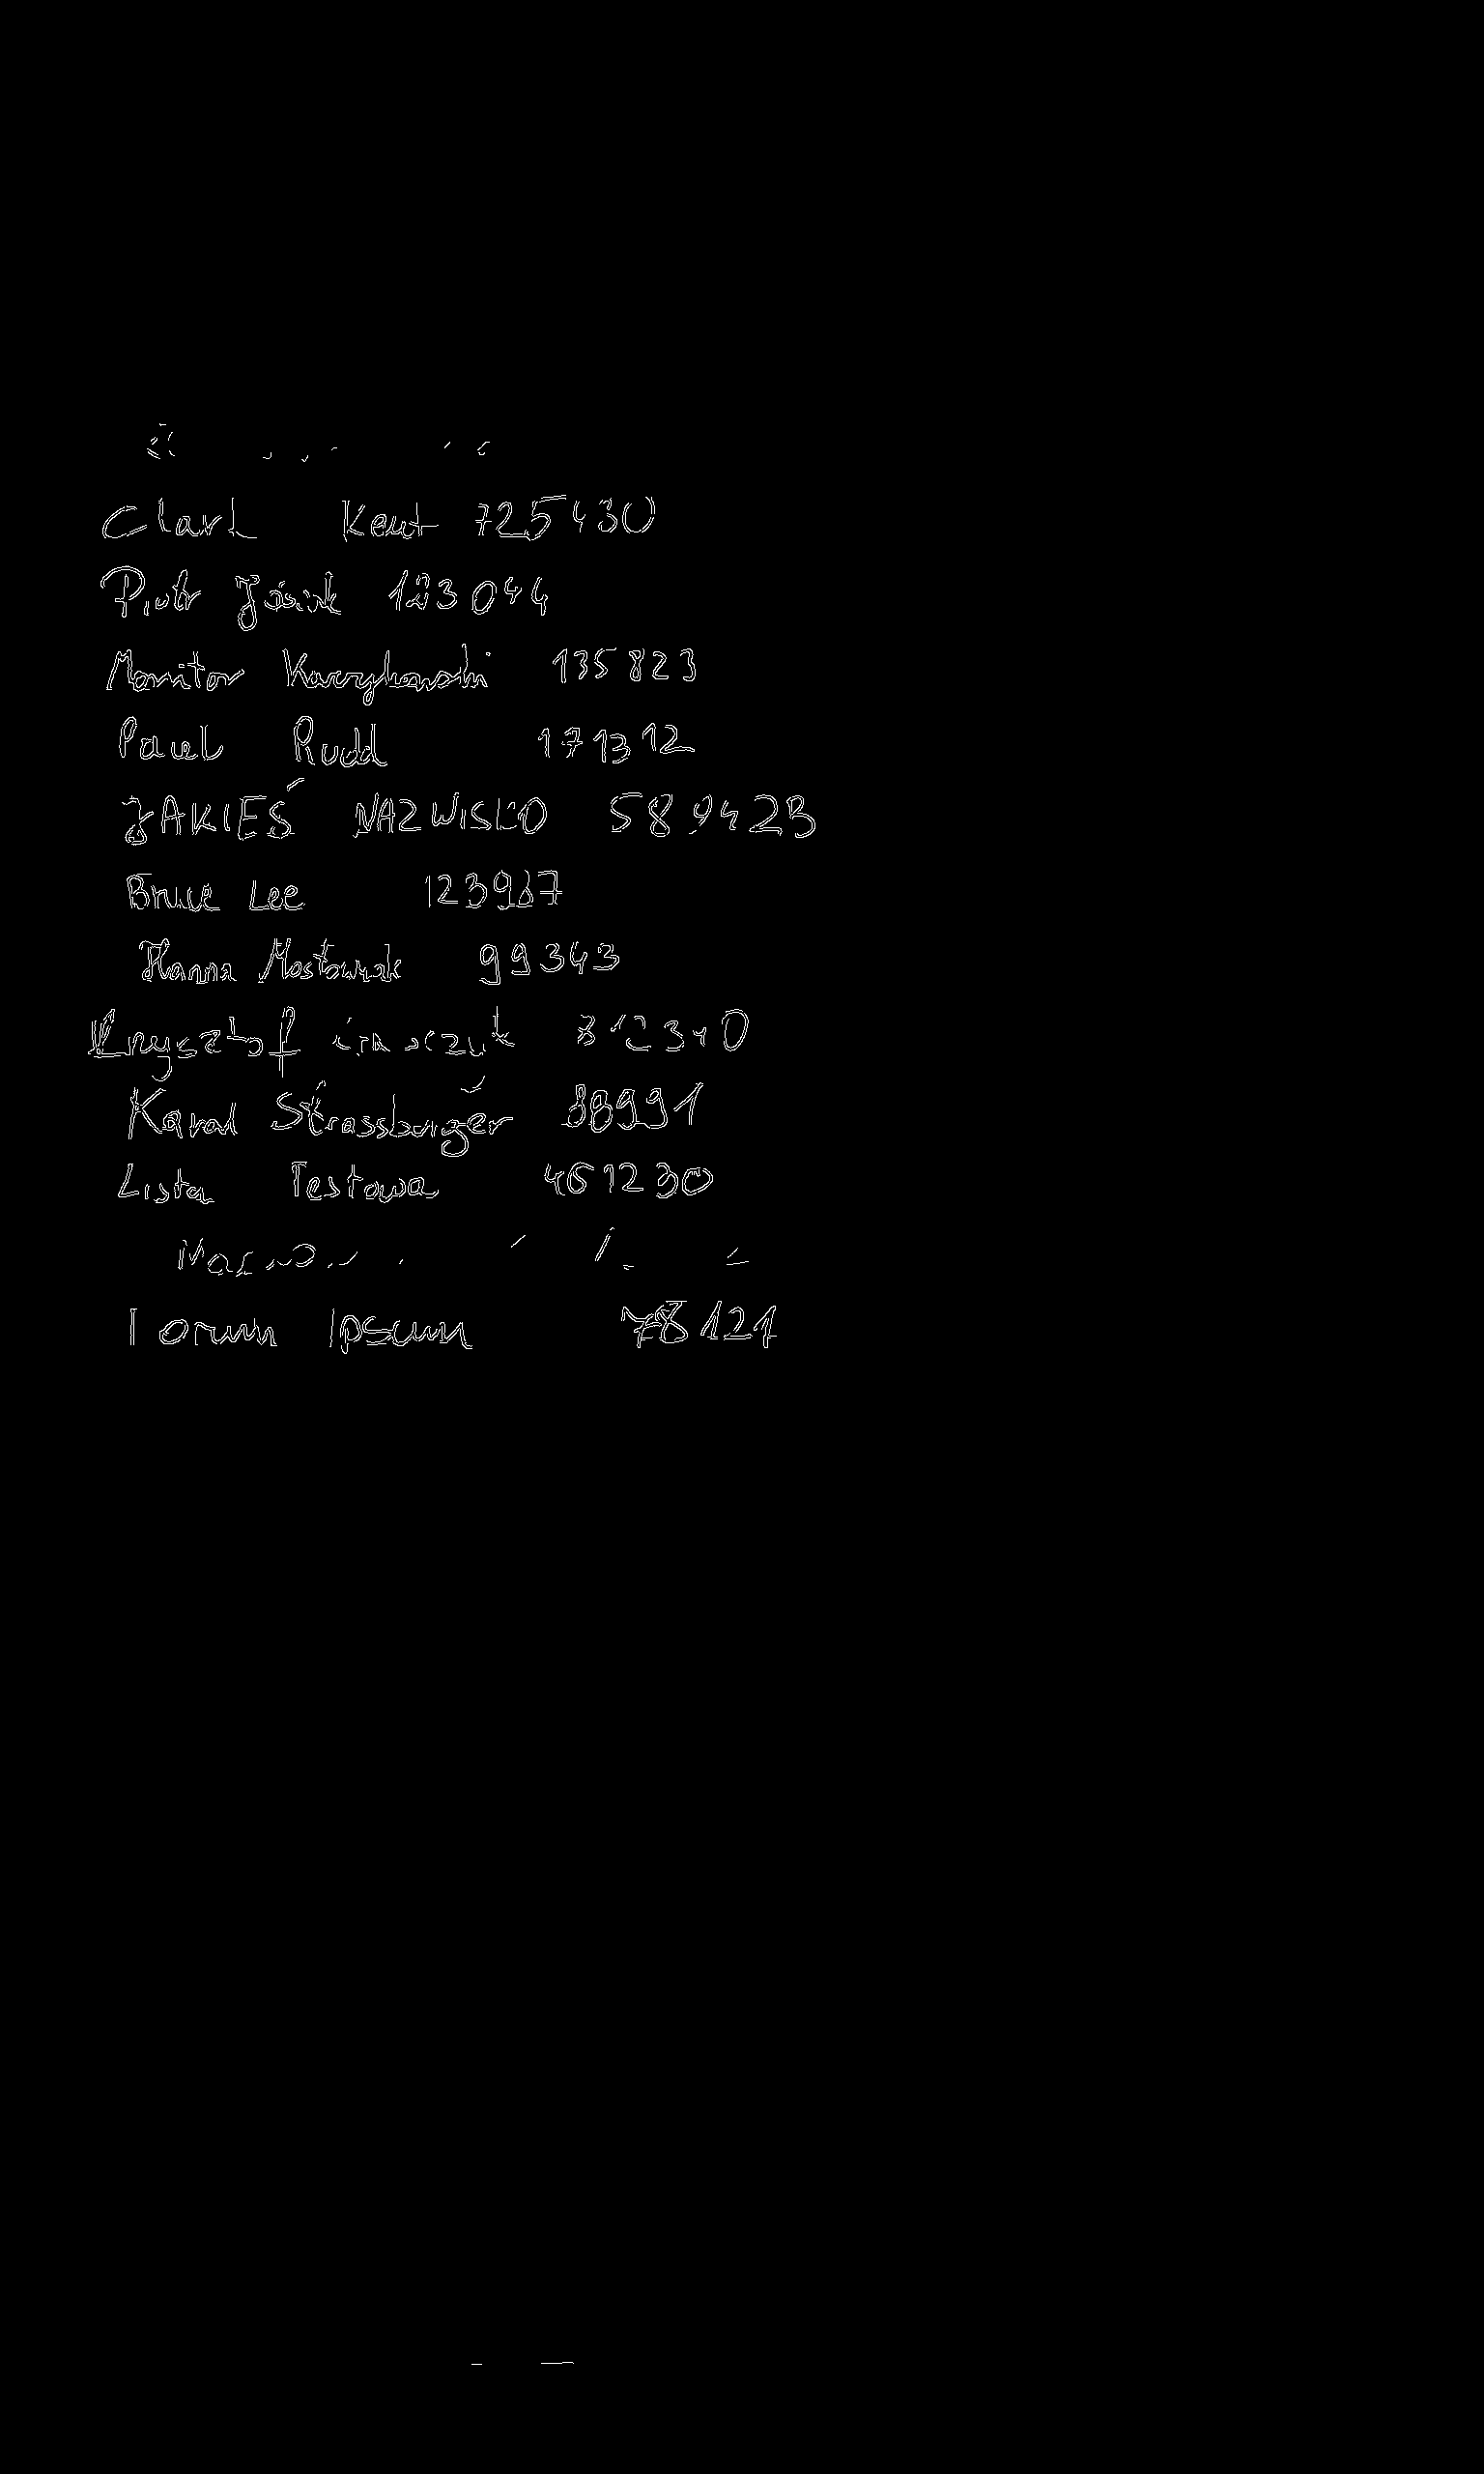 Clark Kent 725430
Piotr Jósiak 123044
Monitor Kurzykowski 135823
Paul Rudd 171312
JAKIEŚ NAZWISKO 589423
Bruce Lee 123937
Hanna Mostowiak 99343
Krzysztof 312340
Karol Strassburger 38991
Lista Testowa 461230
Lorum Ipsum 78121